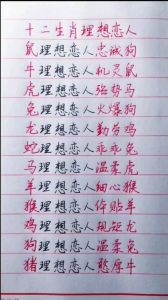 十二生肖理想恋人
鼠理想恋人忠诚狗
牛理想恋人机灵鼠
虎理想恋人强势马
兔理想恋人火爆狗
龙理想恋人勤劳鸡
蛇理想恋人乖乖兔
马理想恋人温柔虎
羊理想恋人细心猴
猴理想恋人体贴羊
鸡理想恋人规矩龙
狗理想恋人温柔兔
猪理想恋人憨厚牛